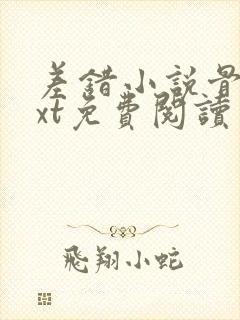 差錯小說
xt免費閱讀
飛翔小蛇